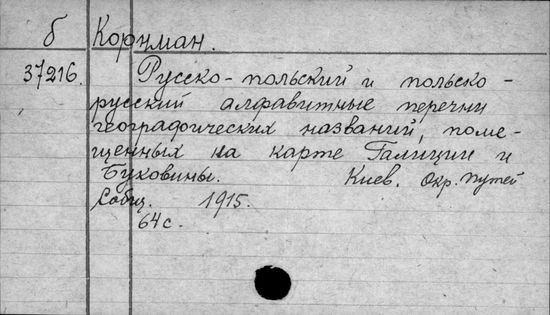 б Корнман.
37216. Русско-польский и польско-
русский алфавитные перечни
географических названий, поме-
щенных на карте Галиции и
Буковины. Киев. Окр. Путей
Сообщ. 1915.
64 с.